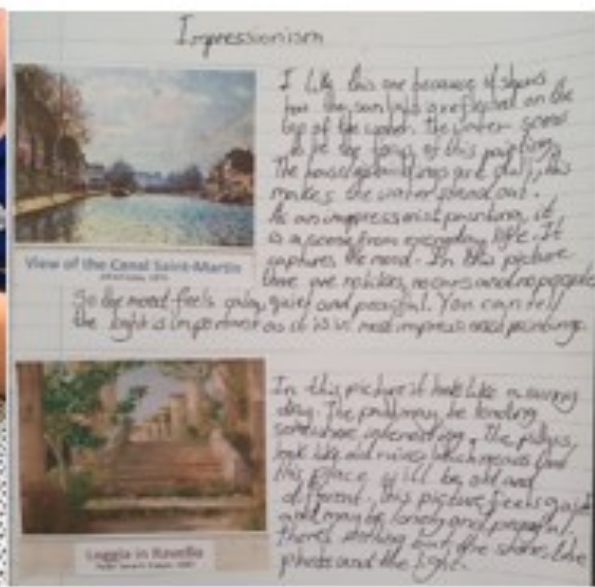 Impressionism
I like this one because it shows
how the sun light is reflected on the
top of the water. The water seems
to be the focus of this painting.
The houses/buildings are dull, this
makes the water stand out.
As an impressionist painting, it
is a scene from everyday life. It
captures the mood. In this picture
there are no bikes, no cars and no people
So the mood feels calm, quiet and peaceful. You can tell
the light is important as it is in most impressionist paintings.
View of the Canal Saint-Martin
In this picture it looks like a sunny
day. The path may be leading
somewhere interesting. The
look like old ruins which means that
this place will be old and
different. this picture feels quiet
and may be lonely and peaceful
there's nothing but the stairs, the
plants and the light.
Loggia in Ravello